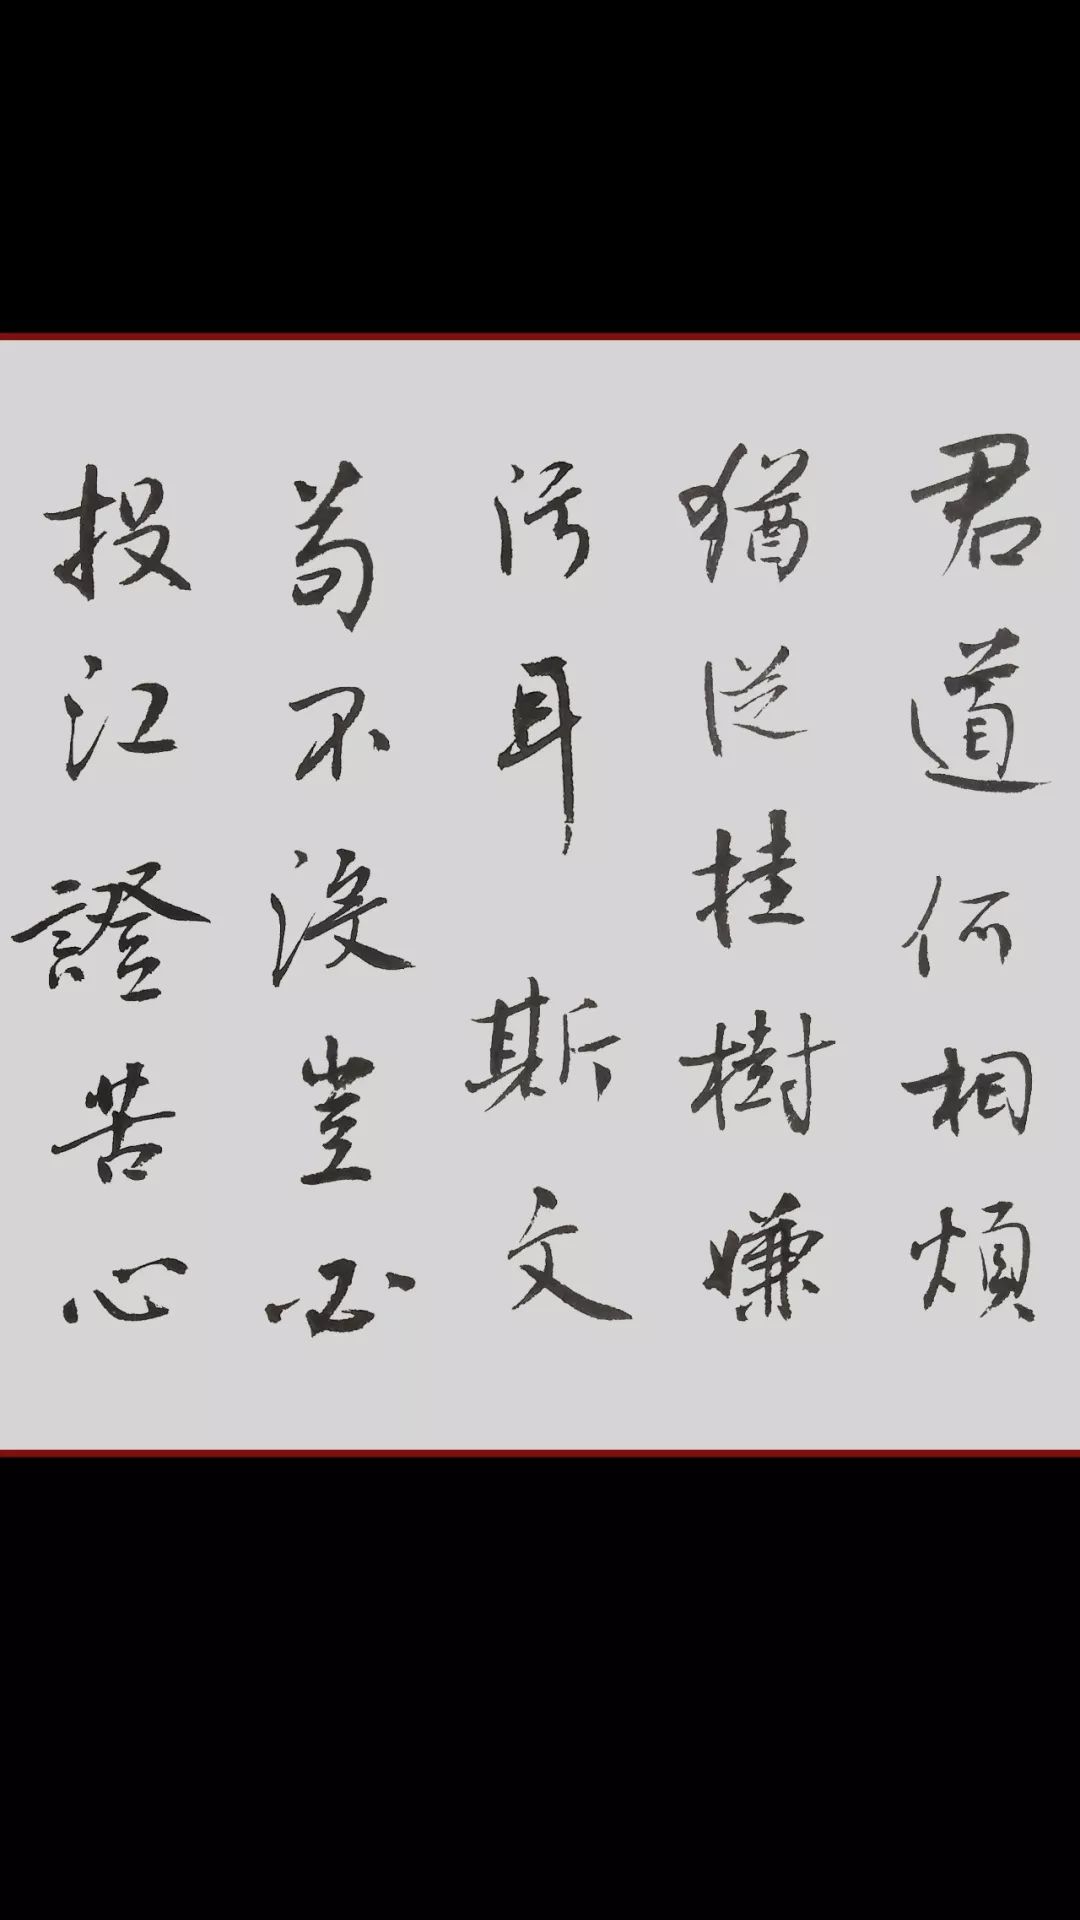 君道何相煩
猶從挂樹嫌
污耳斯文
苟不沒豈必
投江證苦心